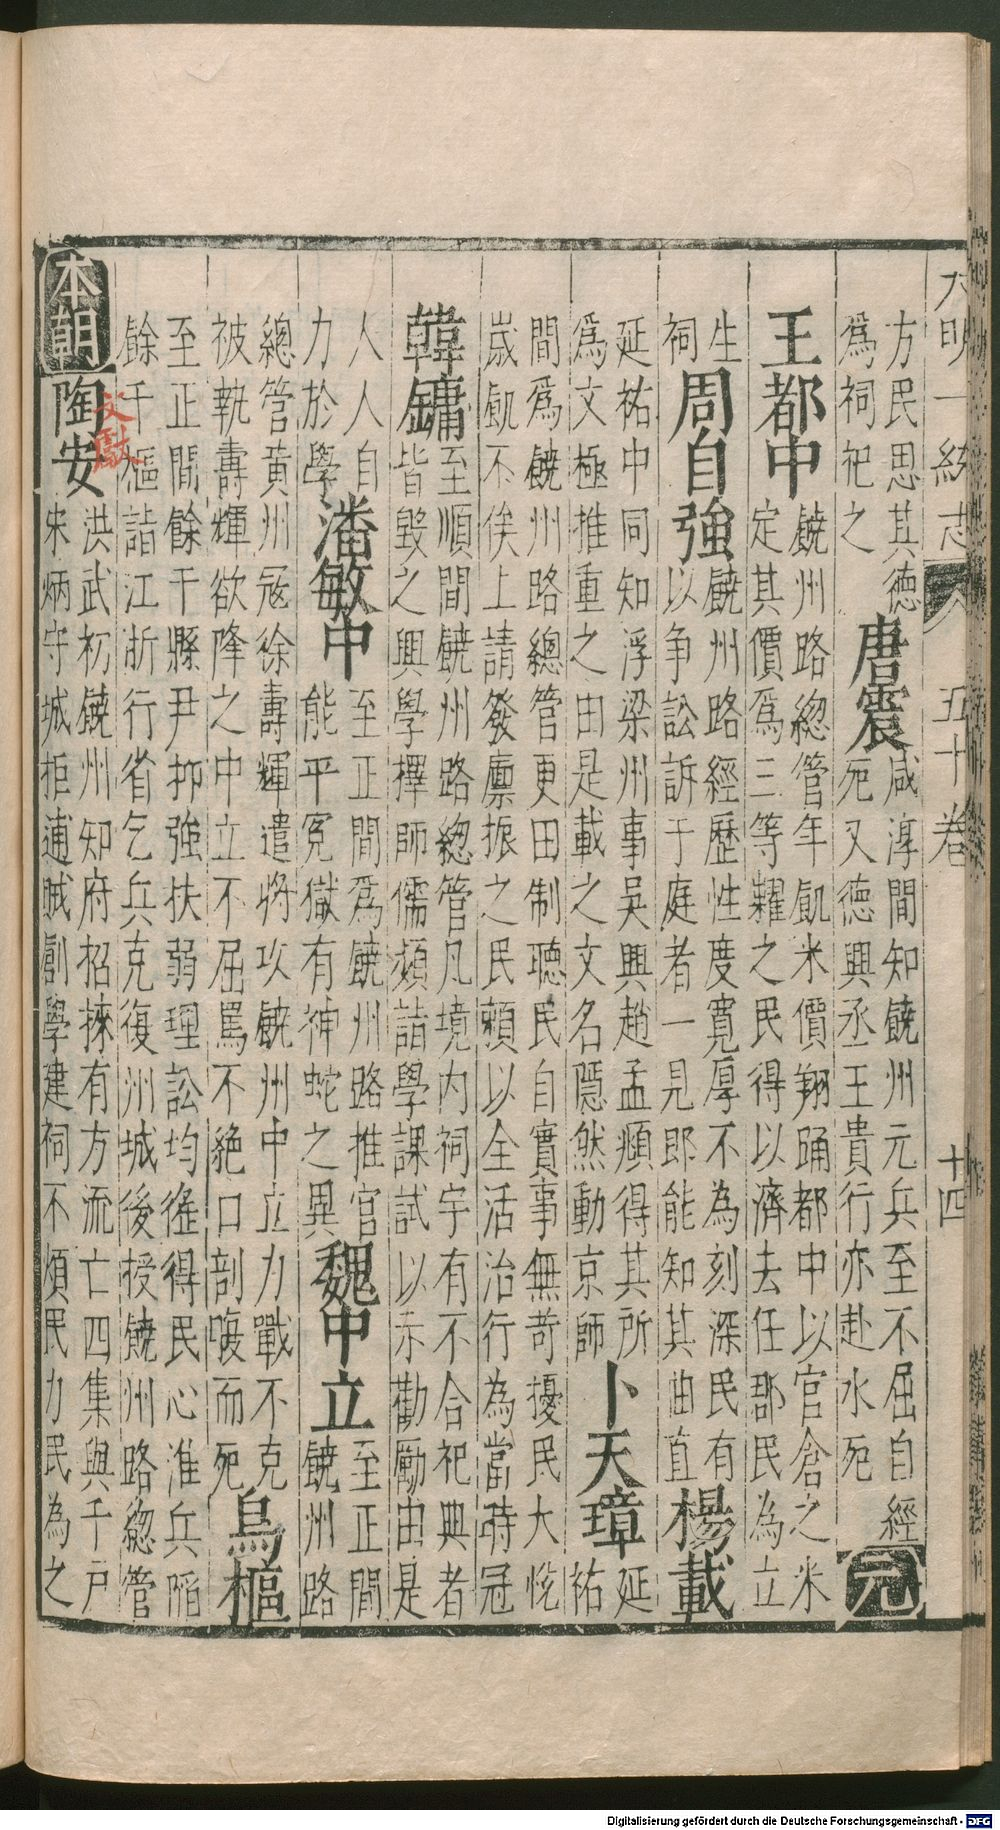 大明一統志 五十卷 十四
方民思其德
為祠祀之
唐震
咸淳間知饒州元兵至不屈自經
死又德興丞王貴行亦赴水死
元
王都中
饒州路總管年飢米價翔踊都中以官倉之米
定其價為三等糶之民得以濟去任郡民為立
生
祠
周自強
饒州路經歷性度寬厚不為刻深民有
以争訟訴于庭者一見即能知其曲直
楊載
延祐中同知浮梁州事吳興趙孟頫得其所
為文極推重之由是載之文名隱然動京師
卜天璋
延
祐
間為饒州路總管更田制聽民自實事無苛擾民大悅
歲飢不俟上請發廩振之民賴以全活治行為當時冠
韓鏞
至順間饒州路總管凡境内祠宇有不合祀典者
皆毀之興學擇師儒頻詣學課試以示勸勵由是
人人自
力於學
潘敏中
至正間為饒州路推官
能平冤獄有神蛇之異
魏中立
至正間
饒州路
總管黄州冦徐壽輝遣將攻饒州中立力戰不克
被執壽輝欲降之中立不屈罵不絶口剖腹而死
烏樞
至正間餘干縣尹抑強扶弱理訟均徭得民心淮兵陷
餘干樞詣江浙行省乞兵克復州城後授饒州路總管
本朝
陶安
文獻
洪武初饒州知府招撫有方流亡四集與千戶
宋炳守城拒逋賊創學建祠不煩民力民為之
Digitalisierung gefördert durch die Deutsche Forschungsgemeinschaft - DFG